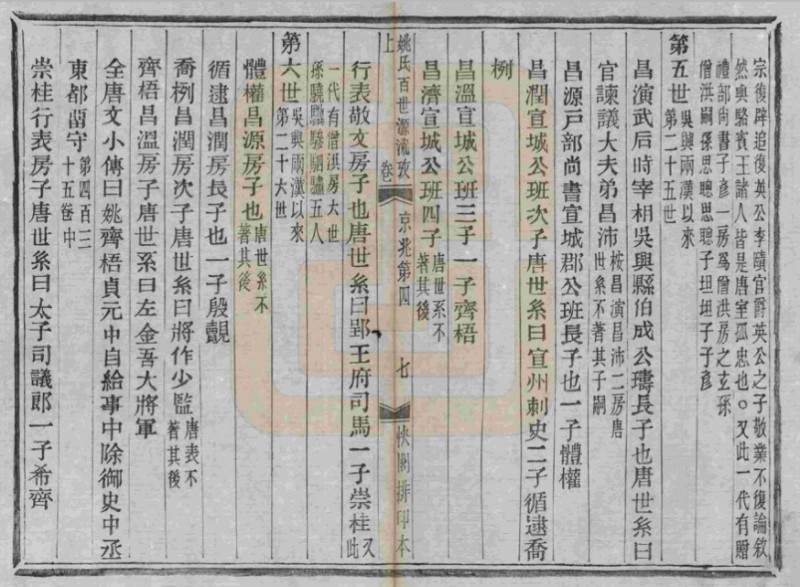 宗復辟追復英公李勣官爵英公之子敬業不復論敘
然與駱賓王諸人皆是唐室孤忠也。又此一代有贈
禮部尚書子彥一房爲僧洪房之玄孫
僧洪嗣孫思聰思聰子坦坦子子彥
第五世吳興兩漢以來
第二十五世
昌演武后時宰相吳興縣伯成公璹長子也唐世系曰
官諫議大夫弟昌沛桉昌演昌沛二房唐
世系不著其子嗣
昌源戸部尚書宣城郡公班長子也一子體權
昌潤宣城公班次子唐世系曰宣州刺史二子循逮喬
栵
昌溫宣城公班三子一子齊梧
昌濟宣城公班四子唐世系不
著其後
姚氏百世源流攷
卷上
京兆第四
七
快閣排印本
行表敬文房子也唐世系曰郢王府司馬一子崇桂又此
一代有僧洪房六世
孫驍驫驂駰驌五人
第六世吳興兩漢以來
第二十六世
體權昌源房子也唐世系不
著其後
循逮昌潤房長子也一子殷覿
喬栵昌潤房次子唐世系曰將作少監唐表不
著其後
齊梧昌溫房子唐世系曰左金吾大將軍
全唐文小傳曰姚齊梧貞元中自給事中除御史中丞
東都留守第四百三
十五卷中
崇桂行表房子唐世系曰太子司議郎一子希齊